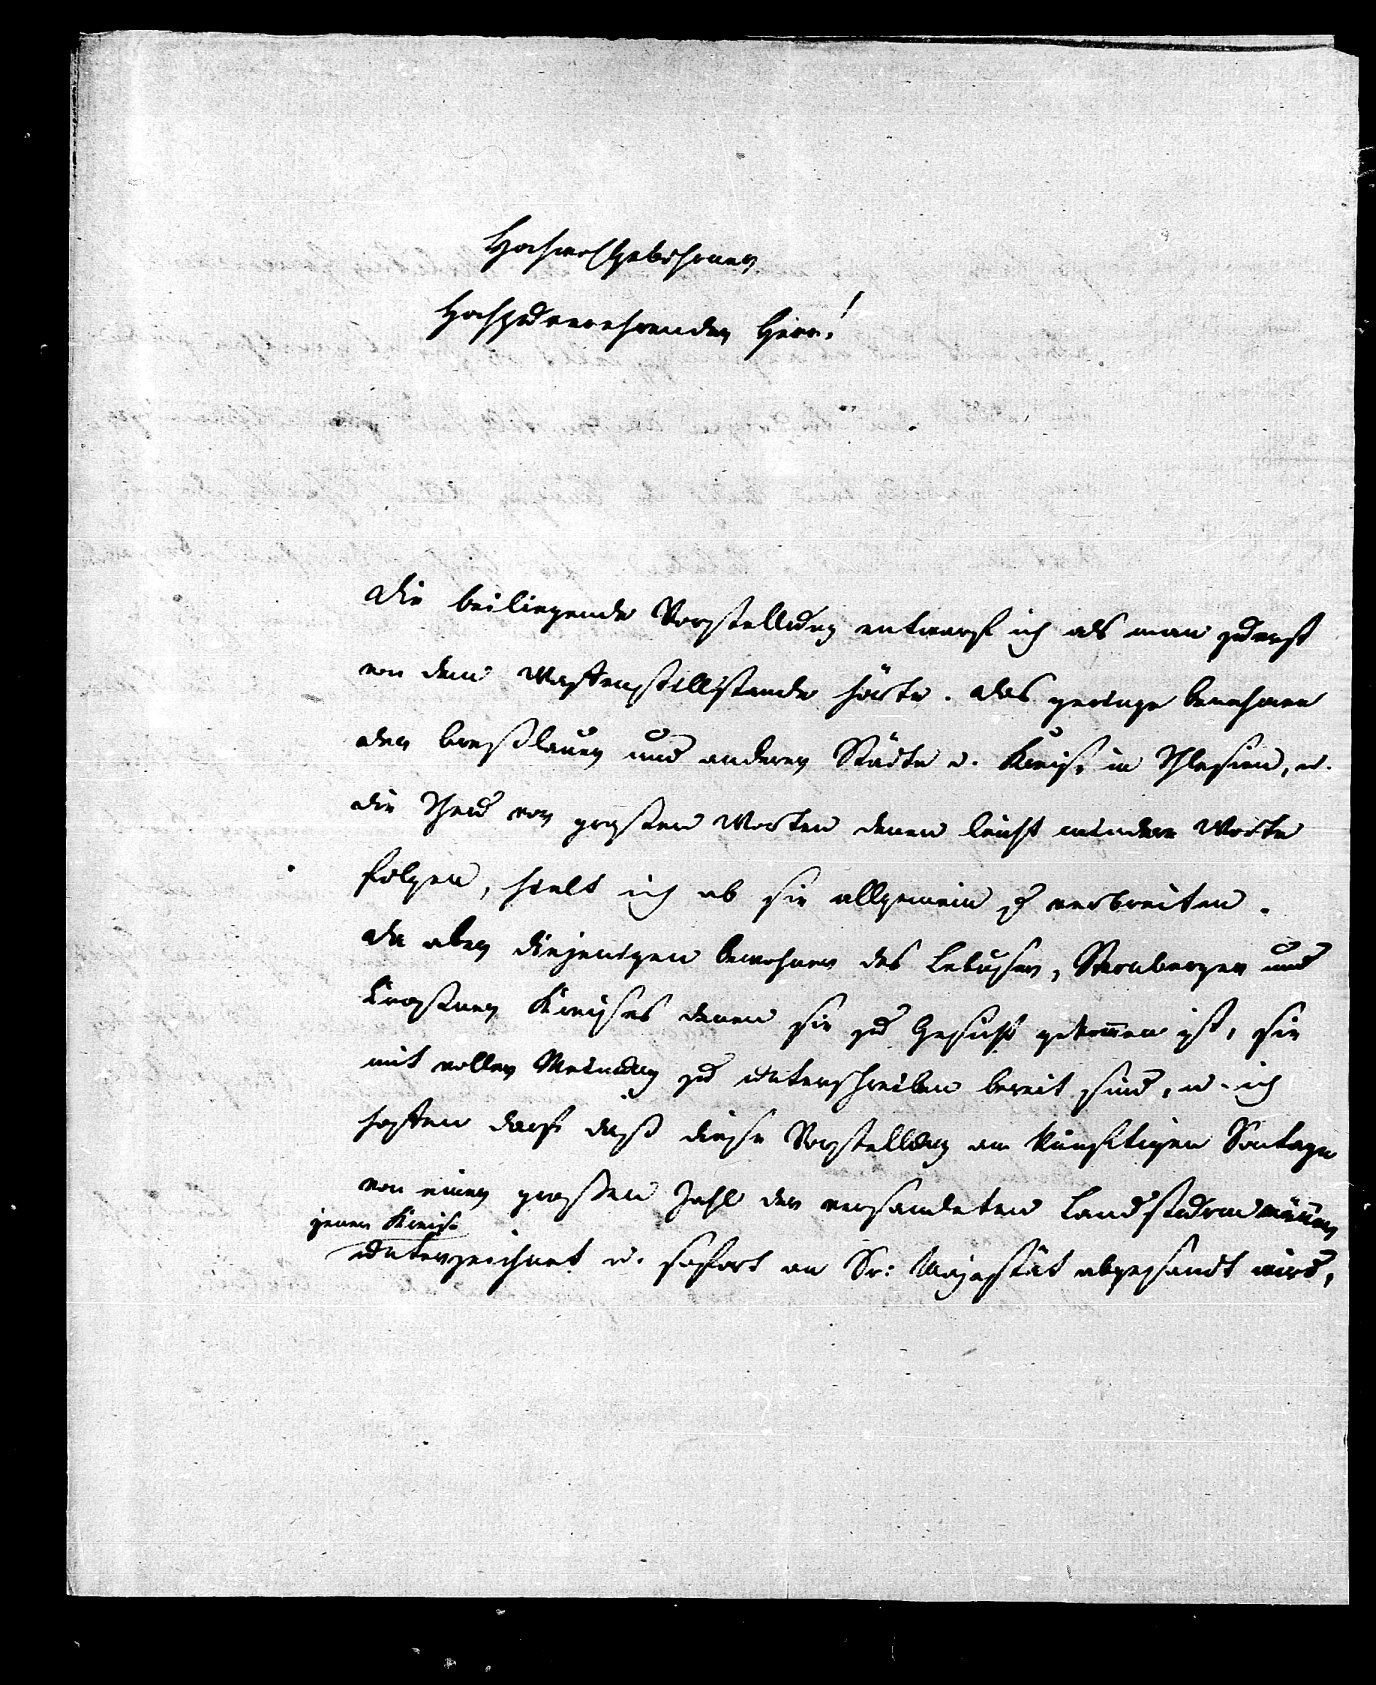 Hochwohlgebohrner
Hochzuverehrender Herr!
Die beiliegende Vorstellung entwarf ich als man zuerst
von dem Waffenstillstande hörte. Das geringe benehmen
der breßlauer und anderer Städte u. Kreise in Schlesien, u.
die Scheu vor großen Worten denen leicht mindere Worte
folgen, hielt mich ab sie allgemein zu verbreiten.
Da aber diejenigen bewohner des Lebuser, Sternberger und
Croßner Kreises denen sie zu Gesicht gekommen ist, sie
mit voller Meinung zu unterschreiben bereit sind, u. ich
hoffen darf daß diese Vorstellung am künftigen Sontage
von einer großen Zahl der versamleten Landsturmmänner
jener Kreise
unterzeichnet u. sofort an Sr: Majestät abgesandt wird,